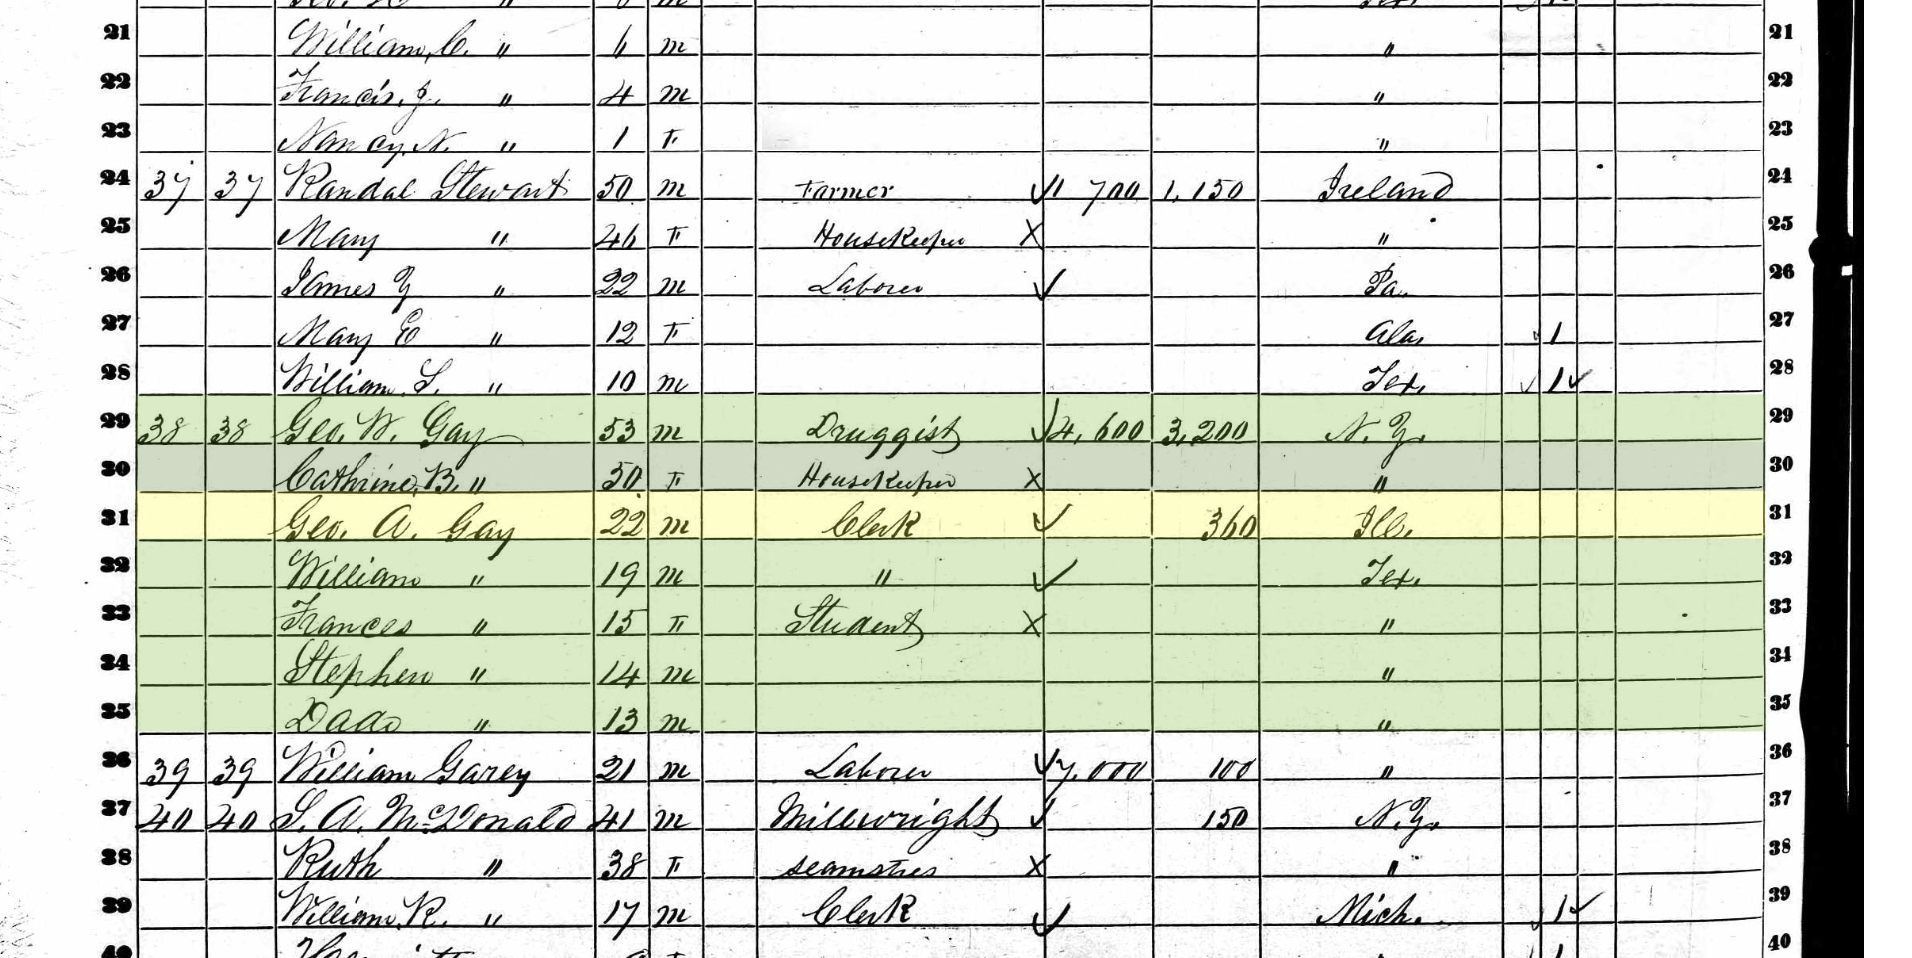 21 William, C. " 6 m " 21
22 Francis. J. " 4 m " 22
23 Nancy. N. " 1 F " 23
24 37 37 Randal Stewart 50 m Farmer 700 1,150 Ireland 24
25 Mary " 46 F Housekeeper X " 25
26 James Y " 22 m Laborer ✓ Pa. 26
27 Mary E " 12 F Ala, 1 27
28 William. S. " 10 m Tex. ✓ 1 ✓ 28
29 38 38 Geo. W. Gay 53 m Druggist ✓ 4,600 3,200 N.Y. 29
30 Cathrine. B. " 50 F Housekeeper X " 30
31 Geo. A. Gay 22 m Clerk ✓ 360 Ill. 31
32 William " 19 m " ✓ Tex. 32
33 Frances " 15 F Student X " 33
34 Stephen " 14 m " 34
35 " 13 m " 35
36 39 39 William Garey 21 m Laborer ✓ 7,000 100 " 36
37 40 40 S. A. McDonald 41 m Millwright ✓ 150 N.Y. 37
38 Ruth " 38 F seamstres X " 38
39 William. R. " 17 m Clerk ✓ Mich. 1 ✓ 39
40 40